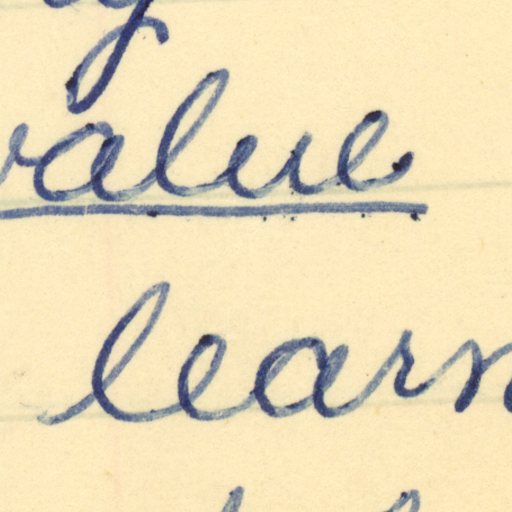 value
learn